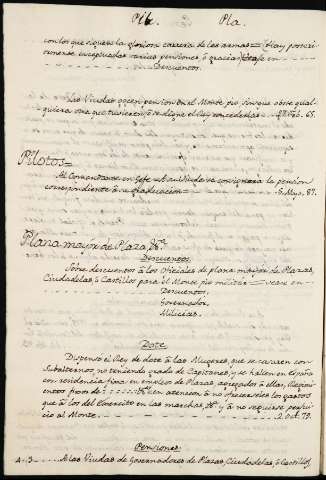 Pil. Pla.
con los que siguen la gloriosa carrera de las armas = (Hay posterior-
mente exceptuadas varias pensiones, ó gracias) Vease en
Descuentos.
Las Viudas gozen pension en el Monte pio sin que obste qual-
quiera otra que tuviesen, ó se digne el Rey concederlas = 65.
Pilotos =
Al Comandante en Gefe = A su Viuda se consignará la pension
correspondiente á su graduacion = 5. Mayo. 87.
Plana mayor de Plaza, &ca.
Descuentos.
Sobre descuentos á los Oficiales de plana mayor de Plazas,
Ciudadelas, ó Castillos para el Monte pio militar = vease en
Descuentos.
Governador.
Milicias.
Dote
Dispensó el Rey de dote á las Mugeres, que se casaren con
Subalternos, no teniendo grado de Capitanes, y se hallen en España
con residencia fixa en empleo de Plazas, agregados á ellas, Regimi-
entos fixos de en atencion á no ofrecerseles los gastos
que á los del Exercito en las marchas, &c. y á no seguirse perjui-
cio al Monte 2. Oct. 79.
Pensiones
A las Viudas de Governadores de Plazas, Ciudadelas, ó Castillos,